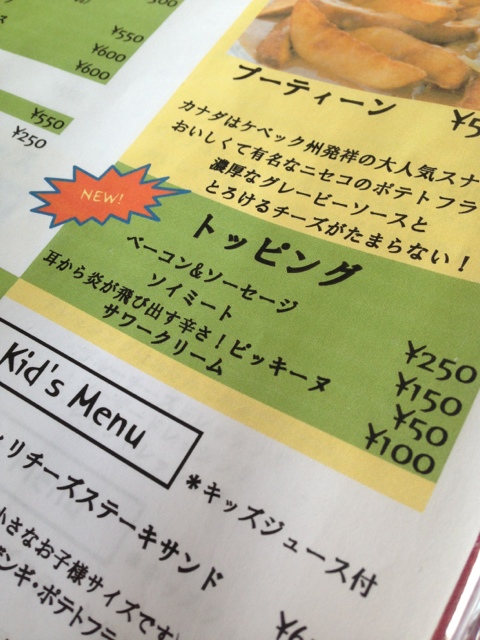 ¥550
¥600
¥600
¥550
¥250
プーティーン
カナダはケベック州発祥の大人気スナ
おいしくて有名なニセコのポテトフラ
濃厚なグレービーソースと
とろけるチーズがたまらない！
NEW!
トッピング
ベーコン&ソーセージ ¥250
ソイミート ¥150
耳から炎が飛び出す辛さ！ピッキーヌ ¥50
サワークリーム ¥100
Kid's Menu
*キッズジュース付
リチーズステーキサンド
小さなお子様サイズです
ンギ・ポテトフラ